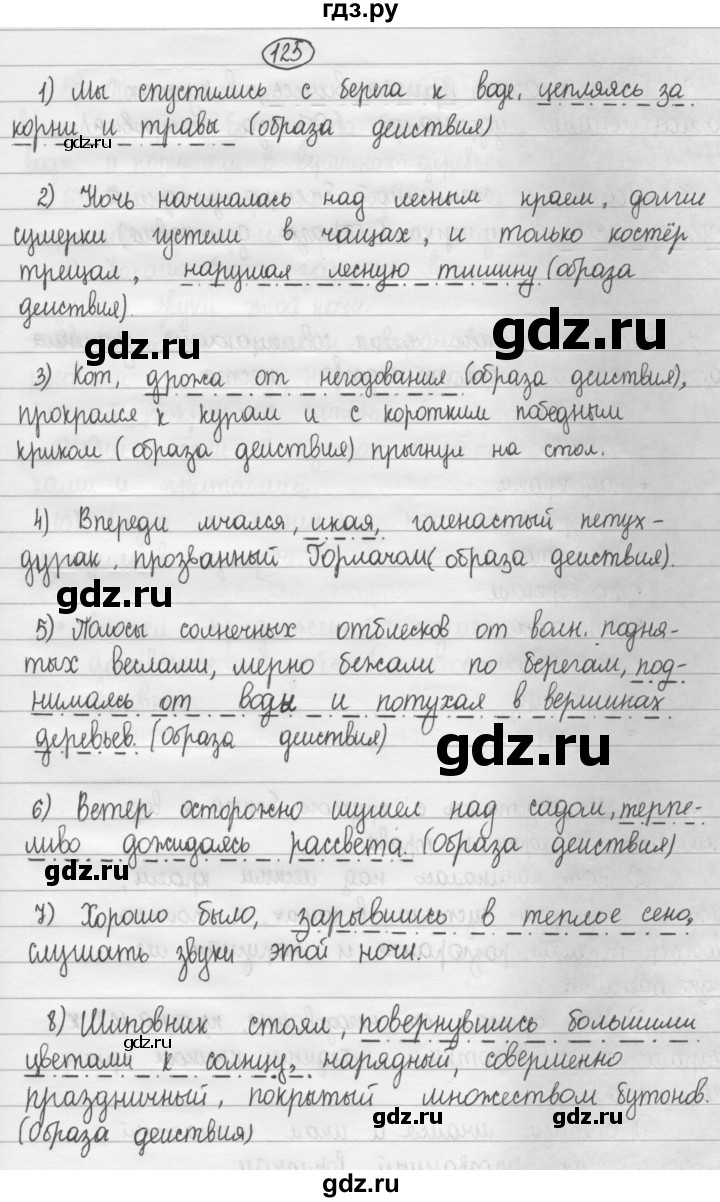 гдз.ру
125
1) Мы спустились с берега к воде, цепляясь за
корни и травы (образа действия)
gdz.ru
2) Ночь начиналась над лесным краем, долгие
сумерки густели в чащах, и только костёр
трещал, нарушая лесную тишину (образа
действия).
gdz.ru
gdz.ru
3) Кот, дрожа от негодования (образа действия),
прокрался к курам и с коротким победным
криком (образа действия) прыгнул на стол.
4) Впереди мчался, икая, голенастый петух -
дурак, прозванный Горлачом (образа действия).
gdz.ru
5) Полосы солнечных отблесков от волн, подня-
тых веслами, мерно бежали по берегам, под-
нимаясь от воды и потухая в вершинах
деревьев. (Образа действия)
gdz.ru
6) Ветер осторожно шумел над садом, терпе-
ливо дожидаясь рассвета. (Образа действия)
gdz.ru
7) Хорошо было, зарывшись в теплое сено,
слушать звуки этой ночи.
gdz.ru
8) Шиповник стоял, повернувшись большими
gdz.ru
цветами к солнцу, нарядный, соверменно
праздничный, покрытый множеством бутонов.
gdz.ru
gdz.ru
(Образа действия)
gdz.ru